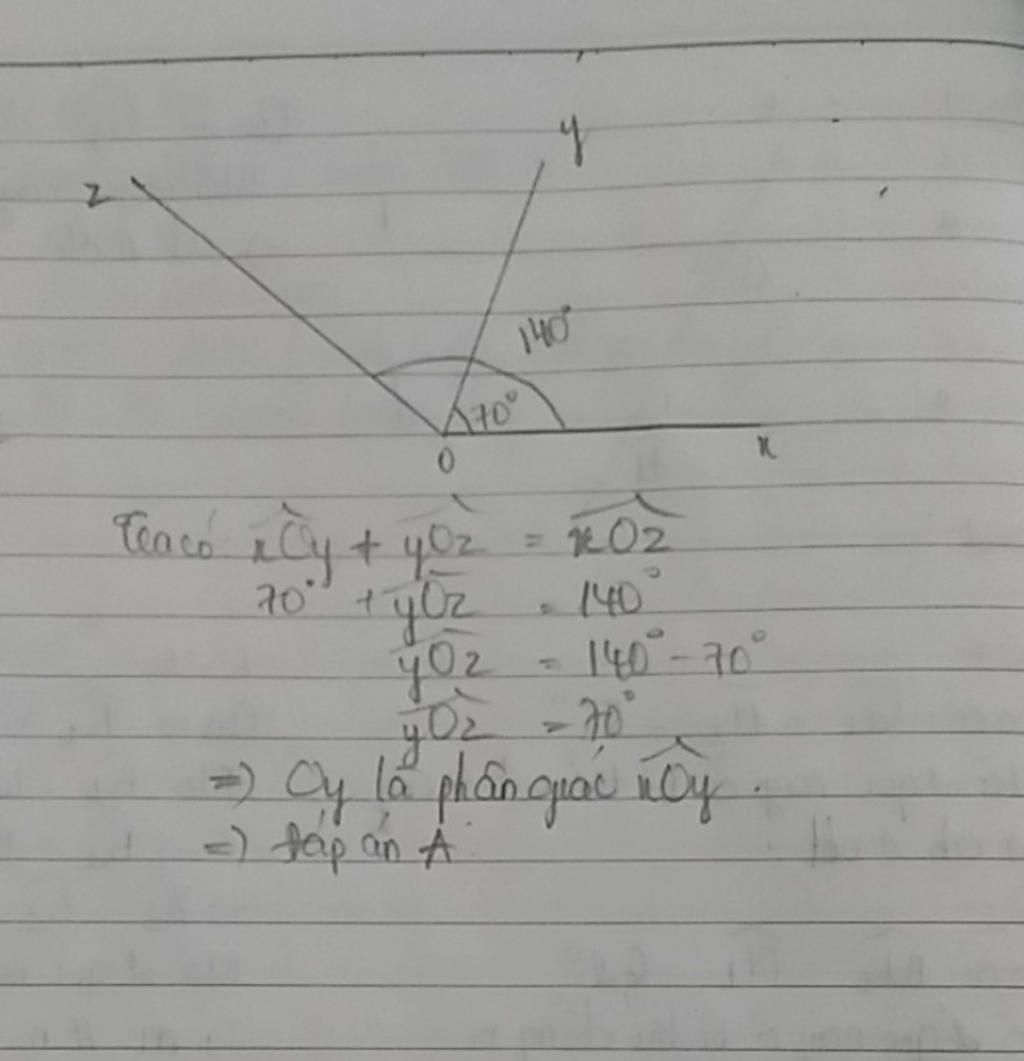 y
z
140°
70°
O
x
Ta có xÔy + yÔz = xÔz
70° + yÔz = 140°
yÔz = 140° - 70°
yÔz = 70°
=) Oy là phân giác xÔy.
=) Đáp án A